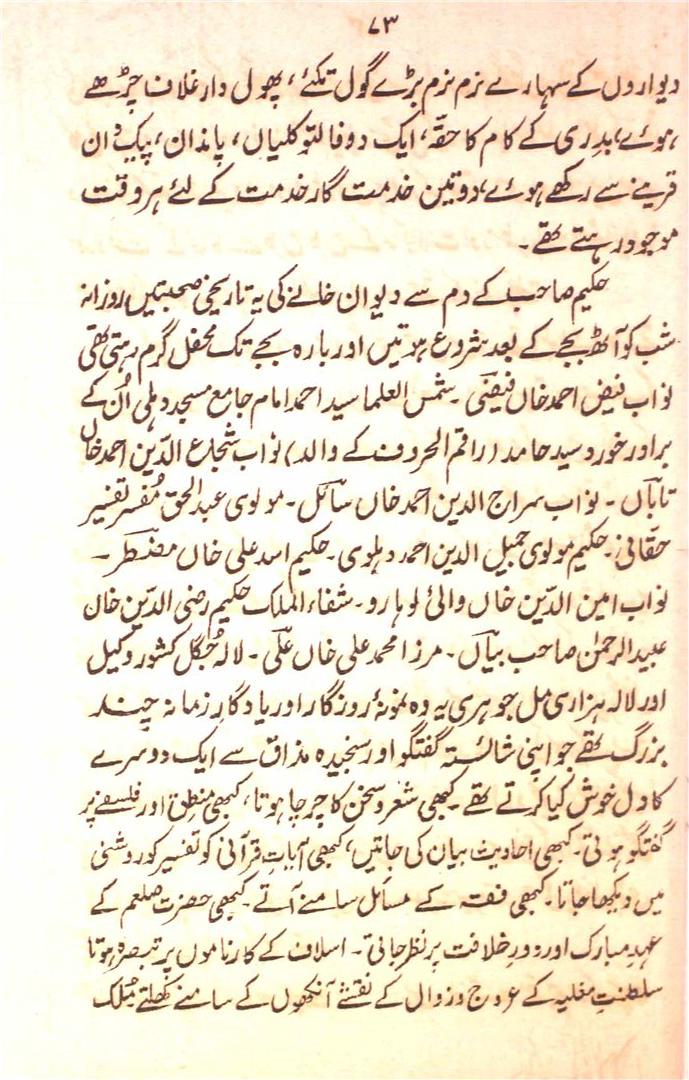 ۷۳
دیواروں کے سہارے نرم نرم بڑے گول تکئے، پھول دار غلاف چڑھے
ہوئے، بدری کے کام کا حقہ، ایک دو فالتو کلیاں، پاندان، پیکدان
قرینے سے رکھے ہوئے، دو تین خدمت گار خدمت کے لئے ہر وقت
موجود رہتے تھے۔
حکیم صاحب کے دم سے دیوان خانے کی یہ تاریخی صحبتیں روزانہ
شب کو آٹھ بجے کے بعد شروع ہوتیں اور بارہ بجے تک محفل گرم رہتی تھی
نواب فیض احمد خاں فیضی۔ شمس العلما سید احمد امام جامع مسجد دہلی اُن کے
برادر خورد سید حامد (راقم الحروف کے والد) نواب شجاع الدّین احمد خاں
تاباں۔ نواب سراج الدین احمد خاں سائل۔ مولوی عبدالحق مُفسر تفسیر
حقّانی۔ حکیم مولوی جمیل الدین احمد دہلوی۔ حکیم اسد علی خاں مضطر۔
نواب امین الدّین خاں والیٔ لوہارو۔ شفاء الملک حکیم رضی الدّین خان
عبیدالرحمٰن صاحب بیاں۔ مرزا محمد علی خاں علّی۔ لالہ جُگل کشور وکیل
اور لالہ ہزاری مل جوہری یہ وہ نمونۂ روزگار اور یادگارِ زمانہ چند
بزرگ تھے جو اپنی شائستہ گفتگو اور سنجیدہ مذاق سے ایک دوسرے
کا دل خوش کیا کرتے تھے۔ کبھی شعر و سخن کا چرچا ہوتا، کبھی منطق اور فلسفے پر
گفتگو ہوتی۔ کبھی احادیث بیان کی جاتیں، کبھی آیاتِ قرآنی کو تفسیر کو روشنی
میں دیکھا جاتا۔ کبھی فقہ کے مسائل سامنے آتے۔ کبھی حضرت صلعم کے
عہدِ مبارک اور دورِ خلافت پر نظر جاتی۔ اسلاف کے کارناموں پر تبصرہ ہوتا
سلطنتِ مغلیہ کے عروج و زوال کے نقشے آنکھوں کے سامنے کھلتے